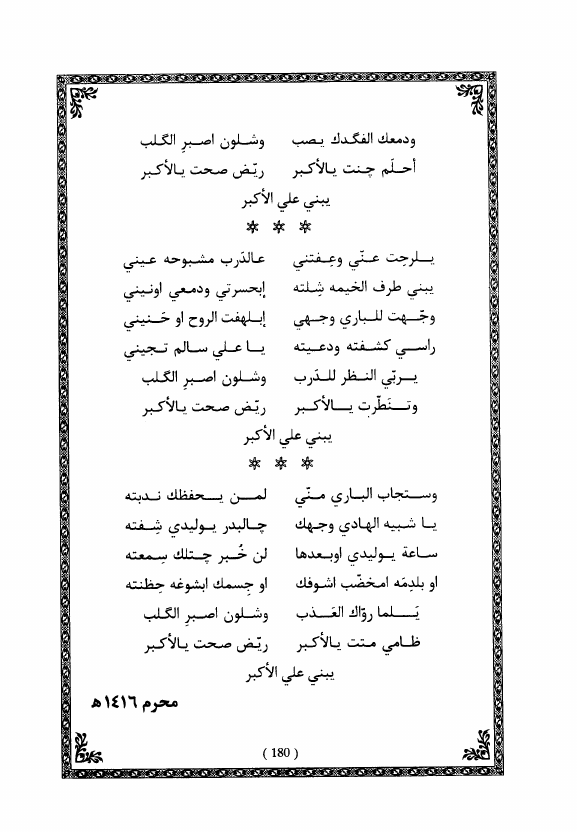 ودمعك الفگدك يـصب وشـلون اصـبرِ الگـلب
أحـلّم چـنت يـالأكـبر ريّـض صحت يـالأكبر
يبني علي الأكبر
* * *
يـلرحِت عـنّي وعِـفتني عـالدَرب مشـبوحه عـيني
يبني طرف الخيمه شِـلته إبحسرتي ودمـعي اونـيني
وجّـهت للـباري وجـهي إبـلهفت الروح او حَـنيني
راسـي كشـفته ودعـيته يـا عـلي سـالم تـجيني
يـربّي النـظر للـدَرب وشـلون اصـبرِ الگـلب
وتـنَطّرت يـالأكـبر ريّـض صحت يـالأكبر
يبني علي الأكبر
* * *
وسـتجاب البـاري مـنّي لمـن يـحفظك نـدبته
يـا شـبيه الهـادي وجـهك چـالبدر يـوليدي شِـفته
سـاعة يـوليدي اوبـعدها لن خُـبر چـتلك سِـمعته
او بلدِمّه امخضّب اشوفك او جِسمك ابشوغه حِظنته
يَـلما روّاك العَـذب وشـلون اصـبرِ الگـلب
ظـامي مـتت يـالأكبر ريّـض صحت يـالأكبر
يبني علي الأكبر
محرم ١٤١٦هـ
( 180 )